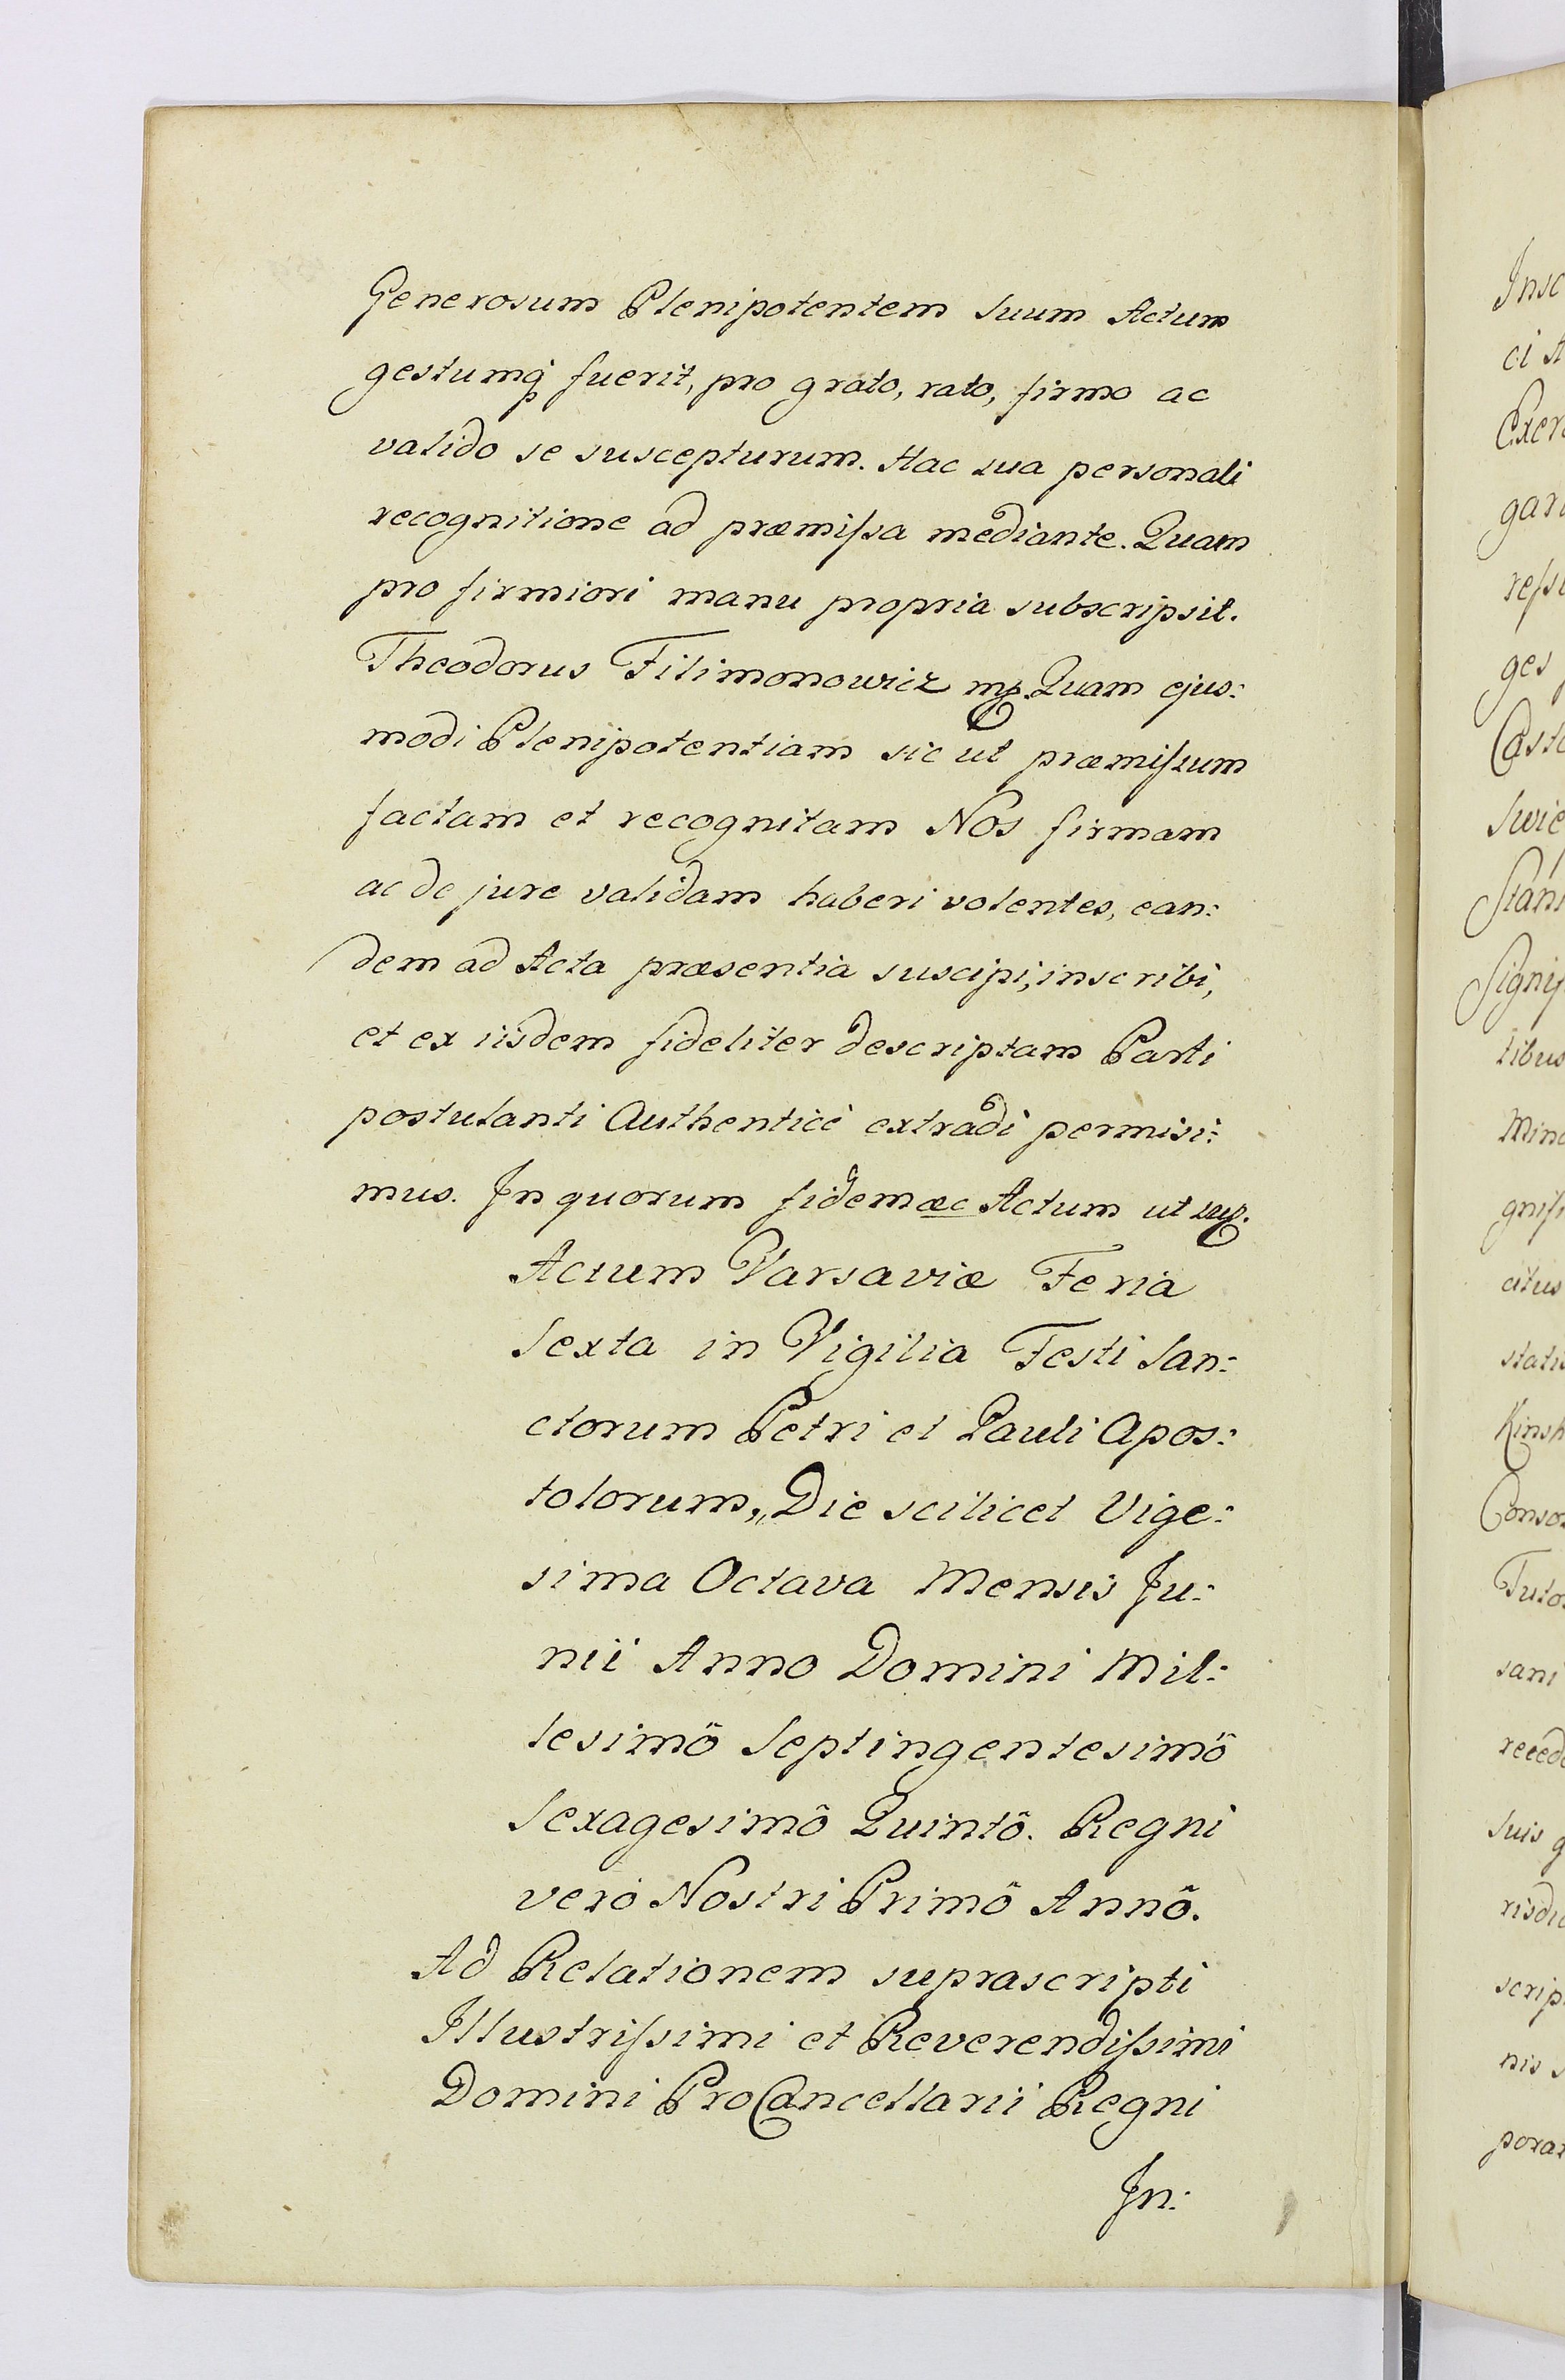 Generosum Plenipotentem suum Actum
gestumq́ fuerit, pro grato, rato, firmo ac
valido se suscepturum. Hac sua personali
recognitione ad præmiſsa mediante. Quam
pro firmiori manu propria subscripsit.
Theodorus Filimonowicz mp. Quam ejus:
modi Plenipotentiam sic ut præmiſsum
factam et recognitam Nos firmam
ac de jure validam haberi volentes, ean:
dem ad Acta præsentia suscipi, inscribi,
et ex iisdem fideliter descriptam Parti
postulanti Authenticè extradi permisi:
mus. In quorum fidem æc Actum ut sup.
Actum Varsaviæ Feria
Sexta in Vigilia Festi San:
ctorum Petri et Pauli Apos:
tolorum,, Die scilicet Vige:
sima Octava Mensis Ju:
nii Anno Domini Mil:
lesimô Septingentesimô
Sexagesimô Quintô. Regni
verò Nostri Primô Annô.
Ad Relationem suprascripti
Illustriſsimi et Reverendiſsimi
Domini ProCancellarii Regni
In:
Insc
ci A
Exer
gar
reſsi
ges
Caste
Swie
Stani
Signif
tibus
Mino
gnifi
citus
statis
Kinsk
Conso
Tuto
sani
reced
suis q
risdic
scrip
nis s
porar